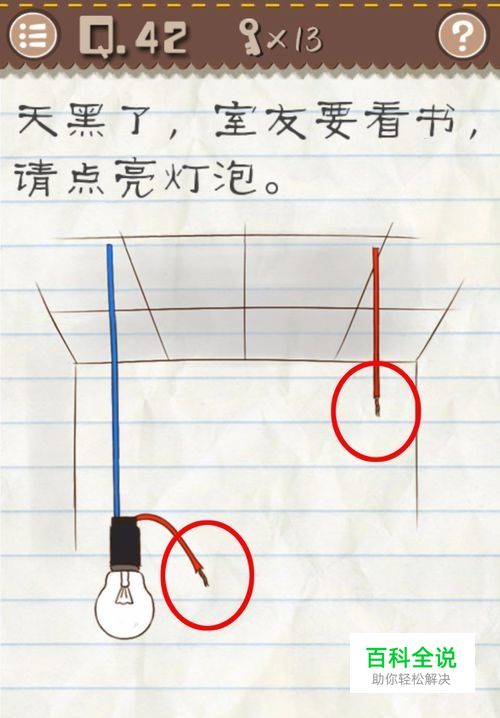 Q.42
×13
?
天黑了，室友要看书，
请点亮灯泡。
百科全说
助你轻松解决